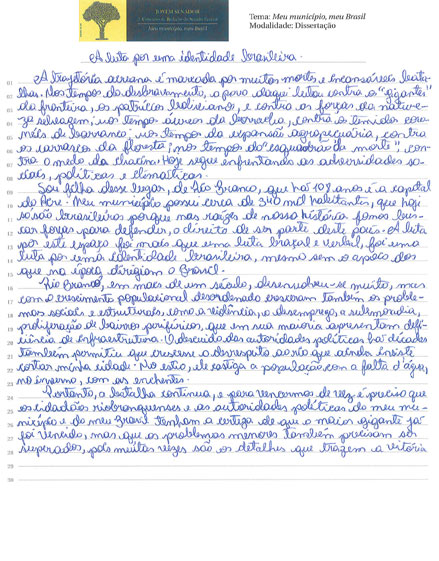 JOVEM SENADOR
Meu município, meu Brasil
Tema: Meu município, meu Brasil
Modalidade: Dissertação
A luta por uma identidade brasileira.
01 A trajetória acreana é marcada por muitas mortes e incansáveis bata-
02 lhas. Nos tempos do desbravamento, o povo daqui lutou contra o "gigante"
03 da fronteira, os patrícios bolivianos, e contra as forças da nature-
04 za selvagem; no tempo áureo da borracha, contra o temido coro-
05 néis de barranco; no tempo da expansão agropecuária, contra
06 os carrascos da floresta; no tempo do "esquadrão da morte", con-
07 tra o medo da chacina. Hoje segue enfrentando as adversidades so-
08 ciais, políticas e climáticas.
09 Sou filha desse lugar, de Rio Branco, que há 108 anos é a capital
10 do Acre. Meu município possui cerca de 340 mil habitantes, que hoje
11 só são brasileiros porque nas raízes de nossa história fomos bus-
12 car forças para defender, o direito de ser parte deste país. A luta
13 por este espaço foi mais que uma luta braçal e verbal, foi uma
14 luta por uma identidade brasileira, mesmo sem o apoio dos
15 que na época dirigiam o Brasil.
16 Rio Branco, em mais de um século, desenvolveu-se muito, mas
17 com o crescimento populacional desordenado cresceram também os proble-
18 mas sociais e estruturais, como a violência, o desemprego, a submoradia,
19 proliferação de bairros periféricos, que em sua maioria apresentam defi-
20 ciência de infraestrutura. O descuido das autoridades políticas há décadas
21 também permitiu que crescesse o desrespeito ao rio que ainda insiste
22 cortar minha cidade. No estio, ele castiga a população com a falta d'água,
23 no inverno, com as enchentes.
24 Portanto, a batalha continua, e para vencermos de vez é preciso que
25 os cidadãos riobranquenses e as autoridades políticas do meu mu-
26 nicípio e do meu Brasil tenham a certeza de que o maior gigante já
27 foi vencido, mas que os problemas menores também precisam ser
28 superados, pois muitas vezes são os detalhes que trazem a vitória
29
30